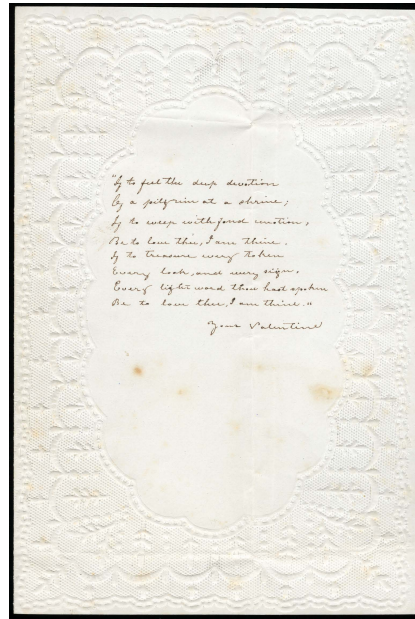 "If to feel the deep devotion
Of a pilgrim at a shrine;
If to weep with fond emotion,
Be to love thee, I am thine.
If to treasure every token
Every look, and every sign,
Every light word thou hast spoken
Be to love thee, I am thine."
Your Valentine